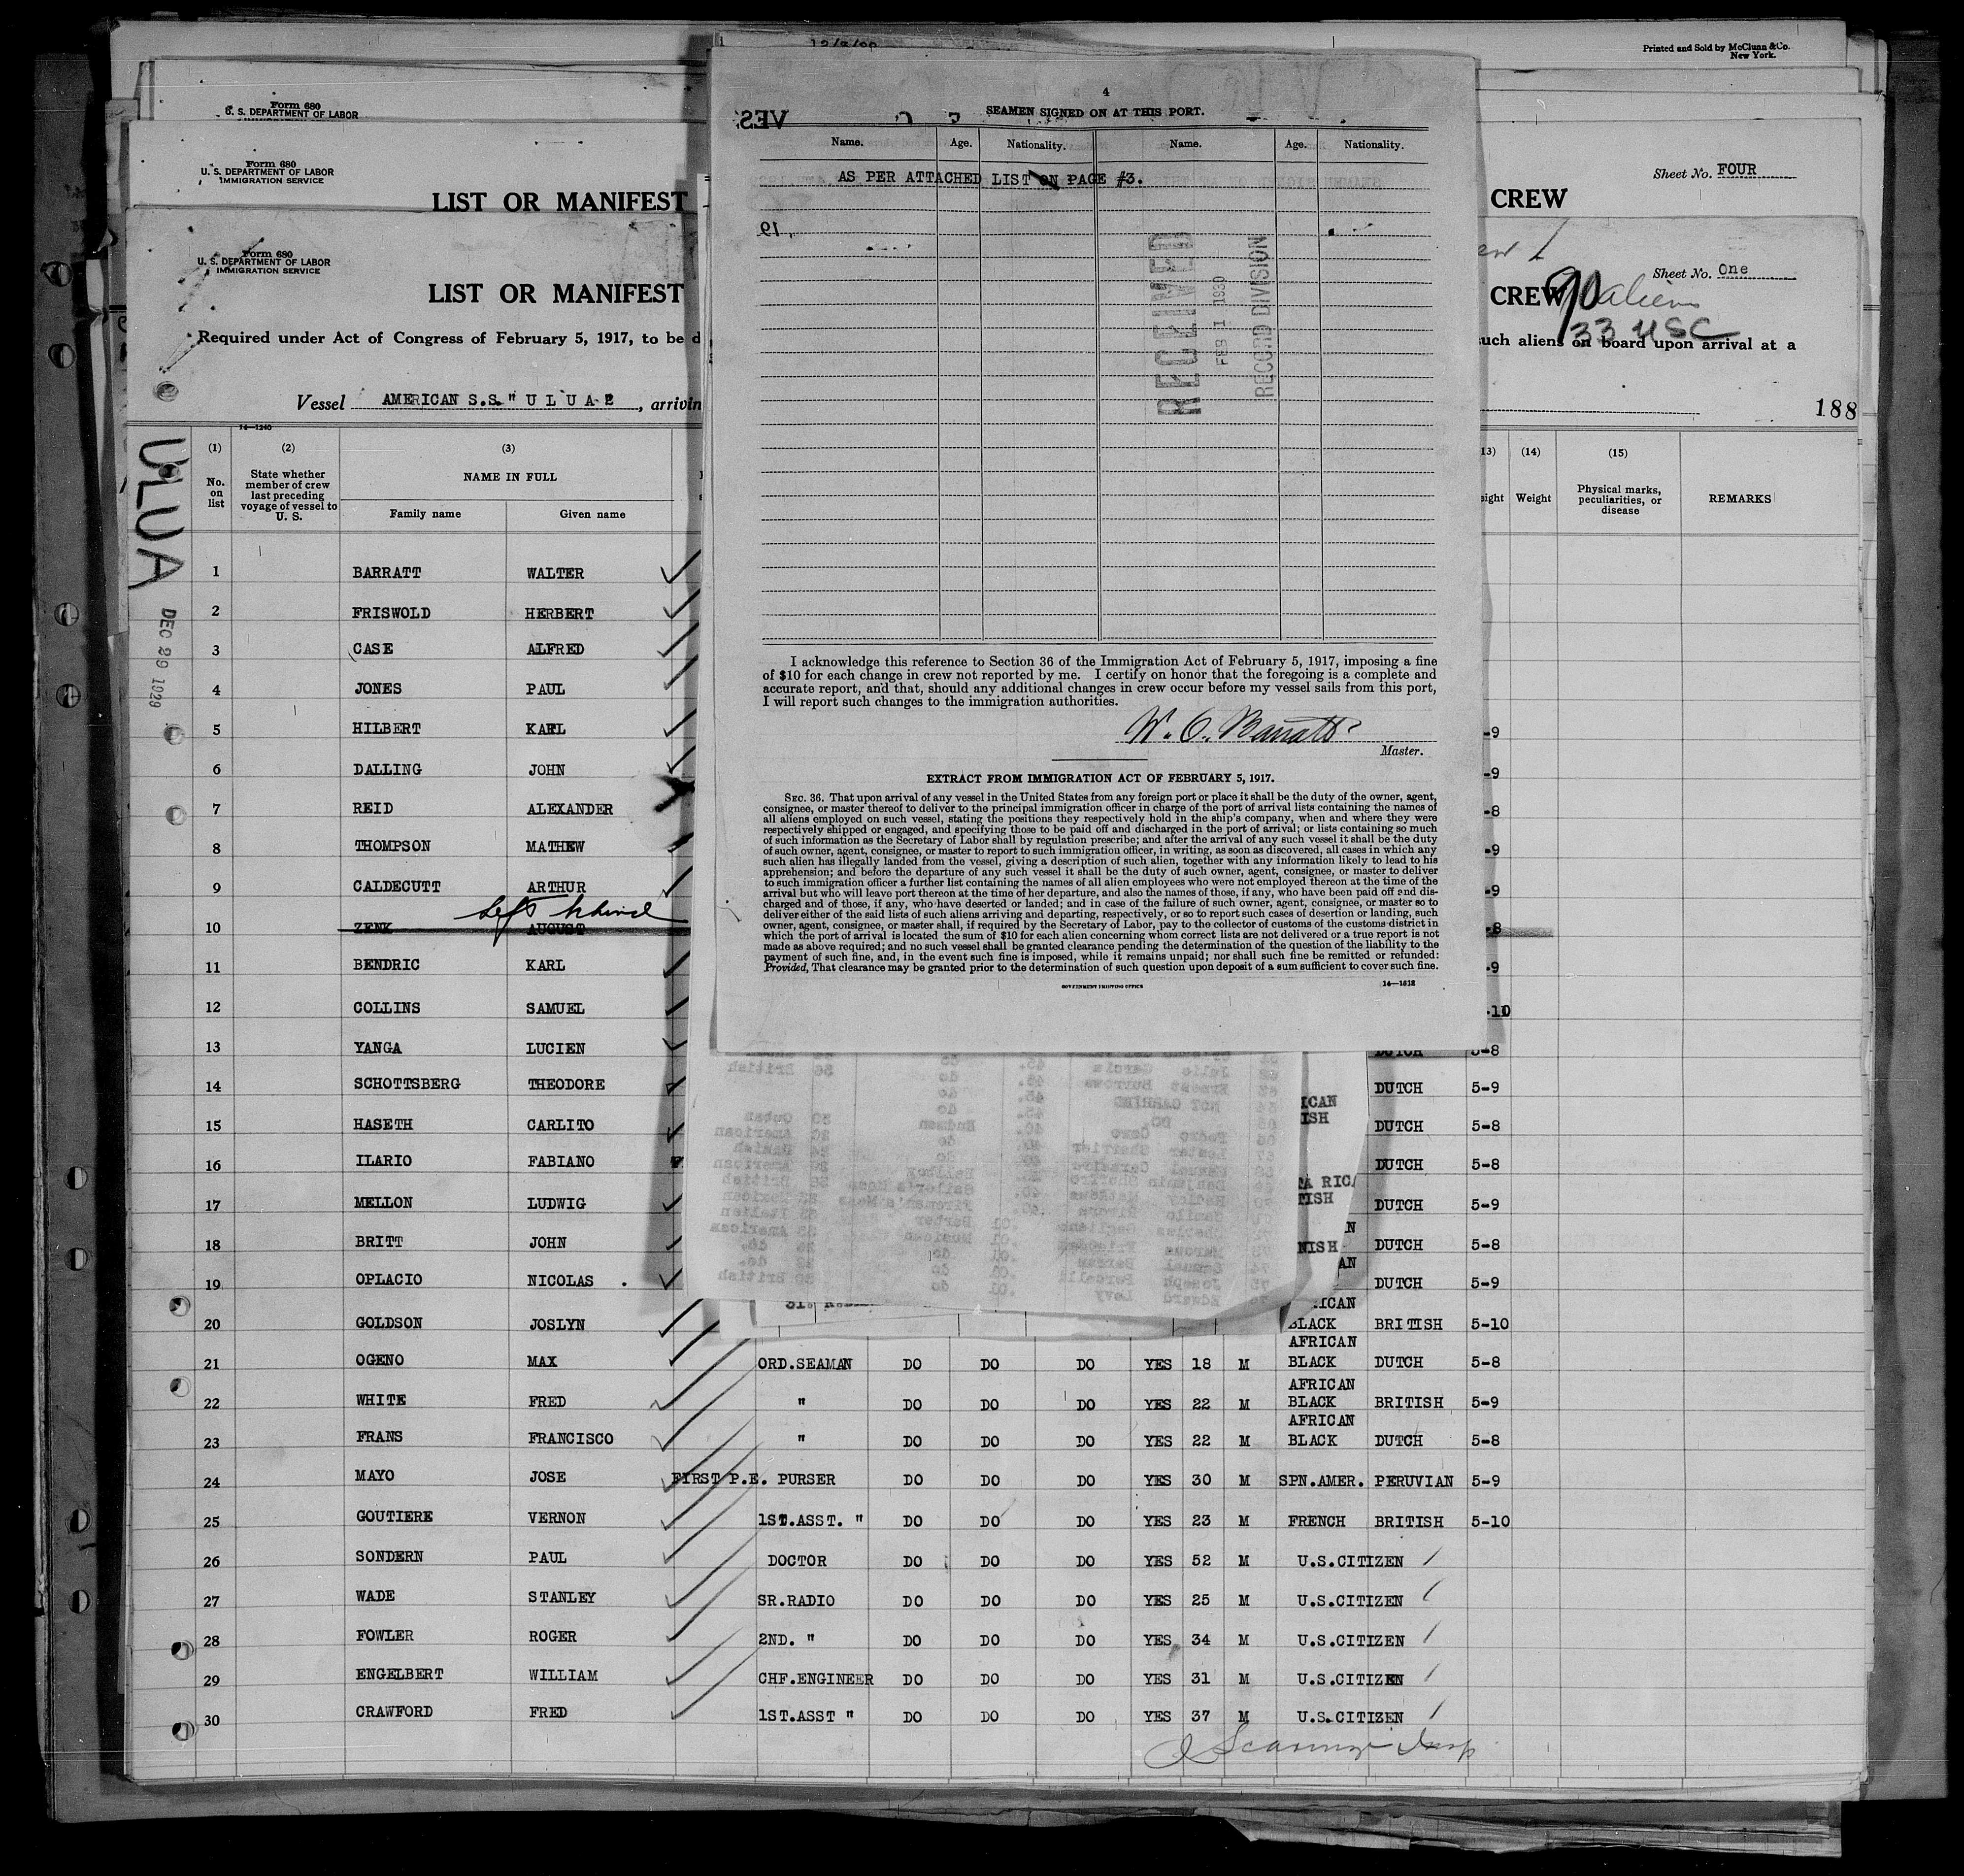 Printed and Sold by McClunn & Co.
New York.
Form 680
U. S. DEPARTMENT OF LABOR
Form 680
U. S. DEPARTMENT OF LABOR
IMMIGRATION SERVICE
LIST OR MANIFEST
CREW
Sheet No. FOUR
Form 680
U. S. DEPARTMENT OF LABOR
IMMIGRATION SERVICE
LIST OR MANIFEST
CREW
Sheet No. One
90 aliens
33 USC
Required under Act of Congress of February 5, 1917, to be d
such aliens on board upon arrival at a
Vessel AMERICAN S.S. "U L U A", arrivin
188
14—1240
ULUA
DEC 29 1929
(1) (2) (3) 13) (14) (15)
No. on list
State whether member of crew last preceding voyage of vessel to U. S.
NAME IN FULL
Family name Given name
eight Weight
Physical marks, peculiarities, or disease
REMARKS
1 BARRATT WALTER
2 FRISWOLD HERBERT
3 CASE ALFRED
4 JONES PAUL
5 HILBERT KARL -9
6 DALLING JOHN -9
7 REID ALEXANDER -8
8 THOMPSON MATHEW -9
9 CALDECUTT ARTHUR -9
left behind
10 ZENK AUGUST -8
11 BENDRIC KARL -9
12 COLLINS SAMUEL -10
13 YANGA LUCIEN DUTCH 5-8
14 SCHOTTSBERG THEODORE DUTCH 5-9
15 HASETH CARLITO DUTCH 5-8
16 ILARIO FABIANO DUTCH 5-8
17 MELLON LUDWIG DUTCH 5-9
18 BRITT JOHN DUTCH 5-8
19 OPLACIO NICOLAS DUTCH 5-9
20 GOLDSON JOSLYN BLACK BRITISH 5-10
AFRICAN
21 OGENO MAX ORD.SEAMAN DO DO DO YES 18 M BLACK DUTCH 5-8
AFRICAN
22 WHITE FRED " DO DO DO YES 22 M BLACK BRITISH 5-9
AFRICAN
23 FRANS FRANCISCO " DO DO DO YES 22 M BLACK DUTCH 5-8
24 MAYO JOSE FIRST P.E. PURSER DO DO DO YES 30 M SPN.AMER. PERUVIAN 5-9
25 GOUTIERE VERNON 1ST.ASST. " DO DO DO YES 23 M FRENCH BRITISH 5-10
26 SONDERN PAUL DOCTOR DO DO DO YES 52 M U.S.CITIZEN
27 WADE STANLEY SR.RADIO DO DO DO YES 25 M U.S.CITIZEN
28 FOWLER ROGER 2ND. " DO DO DO YES 34 M U.S.CITIZEN
29 ENGELBERT WILLIAM CHF.ENGINEER DO DO DO YES 31 M U.S.CITIZEN
30 CRAWFORD FRED 1ST.ASST " DO DO DO YES 37 M U.S.CITIZEN
4
SEAMEN SIGNED ON AT THIS PORT.
Name. Age. Nationality. Name. Age. Nationality.
AS PER ATTACHED LIST ON PAGE #3.
RECEIVED
FEB 1 1930
RECORD DIVISION
I acknowledge this reference to Section 36 of the Immigration Act of February 5, 1917, imposing a fine
of $10 for each change in crew not reported by me. I certify on honor that the foregoing is a complete and
accurate report, and that, should any additional changes in crew occur before my vessel sails from this port,
I will report such changes to the immigration authorities.
W. O. Barratt
Master.
EXTRACT FROM IMMIGRATION ACT OF FEBRUARY 5, 1917.
SEC. 36. That upon arrival of any vessel in the United States from any foreign port or place it shall be the duty of the owner, agent,
consignee, or master thereof to deliver to the principal immigration officer in charge of the port of arrival lists containing the names of
all aliens employed on such vessel, stating the positions they respectively hold in the ship's company, when and where they were
respectively shipped or engaged, and specifying those to be paid off and discharged in the port of arrival; or lists containing so much
of such information as the Secretary of Labor shall by regulation prescribe; and after the arrival of any such vessel it shall be the duty
of such owner, agent, consignee, or master to report to such immigration officer, in writing, as soon as discovered, all cases in which any
such alien has illegally landed from the vessel, giving a description of such alien, together with any information likely to lead to his
apprehension; and before the departure of any such vessel it shall be the duty of such owner, agent, consignee, or master to deliver
to such immigration officer a further list containing the names of all alien employees who were not employed thereon at the time of the
arrival but who will leave port thereon at the time of her departure, and also the names of those, if any, who have been paid off and dis-
charged and of those, if any, who have deserted or landed; and in case of the failure of such owner, agent, consignee, or master so to
deliver either of the said lists of such aliens arriving and departing, respectively, or so to report such cases of desertion or landing, such
owner, agent, consignee, or master shall, if required by the Secretary of Labor, pay to the collector of customs of the customs district in
which the port of arrival is located the sum of $10 for each alien concerning whom correct lists are not delivered or a true report is not
made as above required; and no such vessel shall be granted clearance pending the determination of the question of the liability to the
payment of such fine, and, in the event such fine is imposed, while it remains unpaid; nor shall such fine be remitted or refunded:
Provided, That clearance may be granted prior to the determination of such question upon deposit of a sum sufficient to cover such fine.
GOVERNMENT PRINTING OFFICE
14—1618